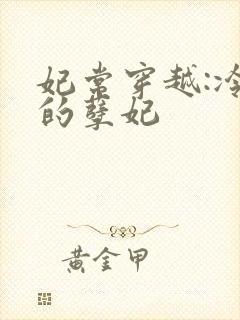 妃常穿越:冷
的孽妃
黄金甲